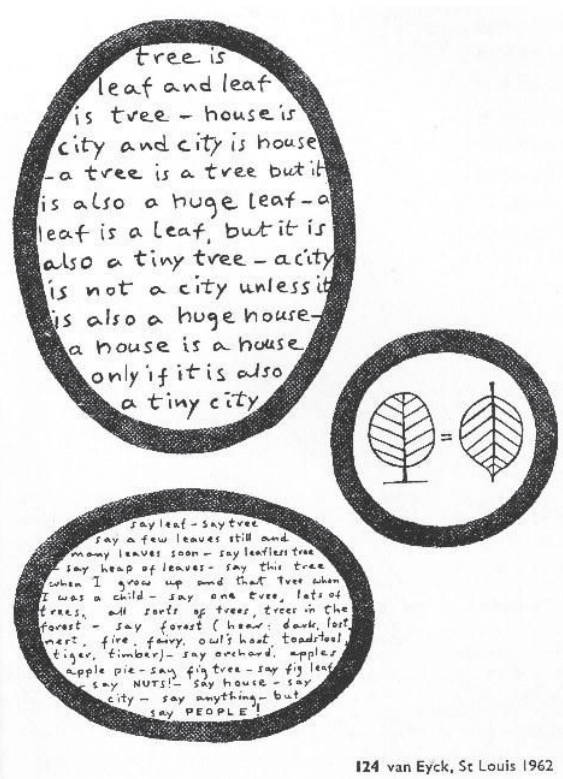 tree is
leaf and leaf
is tree - house is
city and city is house
- a tree is a tree but it
is also a huge leaf - a
leaf is a leaf, but it is
also a tiny tree - a city
is not a city unless it
is also a huge house -
a house is a house
only if it is also
a tiny city
=
say leaf - say tree
say a few leaves still and
many leaves soon - say leafless tree
- say heap of leaves - say this tree
when I grow up and that tree when
I was a child - say one tree, lots of
trees, all sorts of trees, trees in the
forest - say forest (hear: dark, lost,
nest, fire, fairy, owl's hoot, toadstool,
tiger, timber) - say orchard, apples
apple pie - say fig tree - say fig leaf
- say NUTS! - say house - say
city - say anything - but
say PEOPLE!
124 van Eyck, St Louis 1962